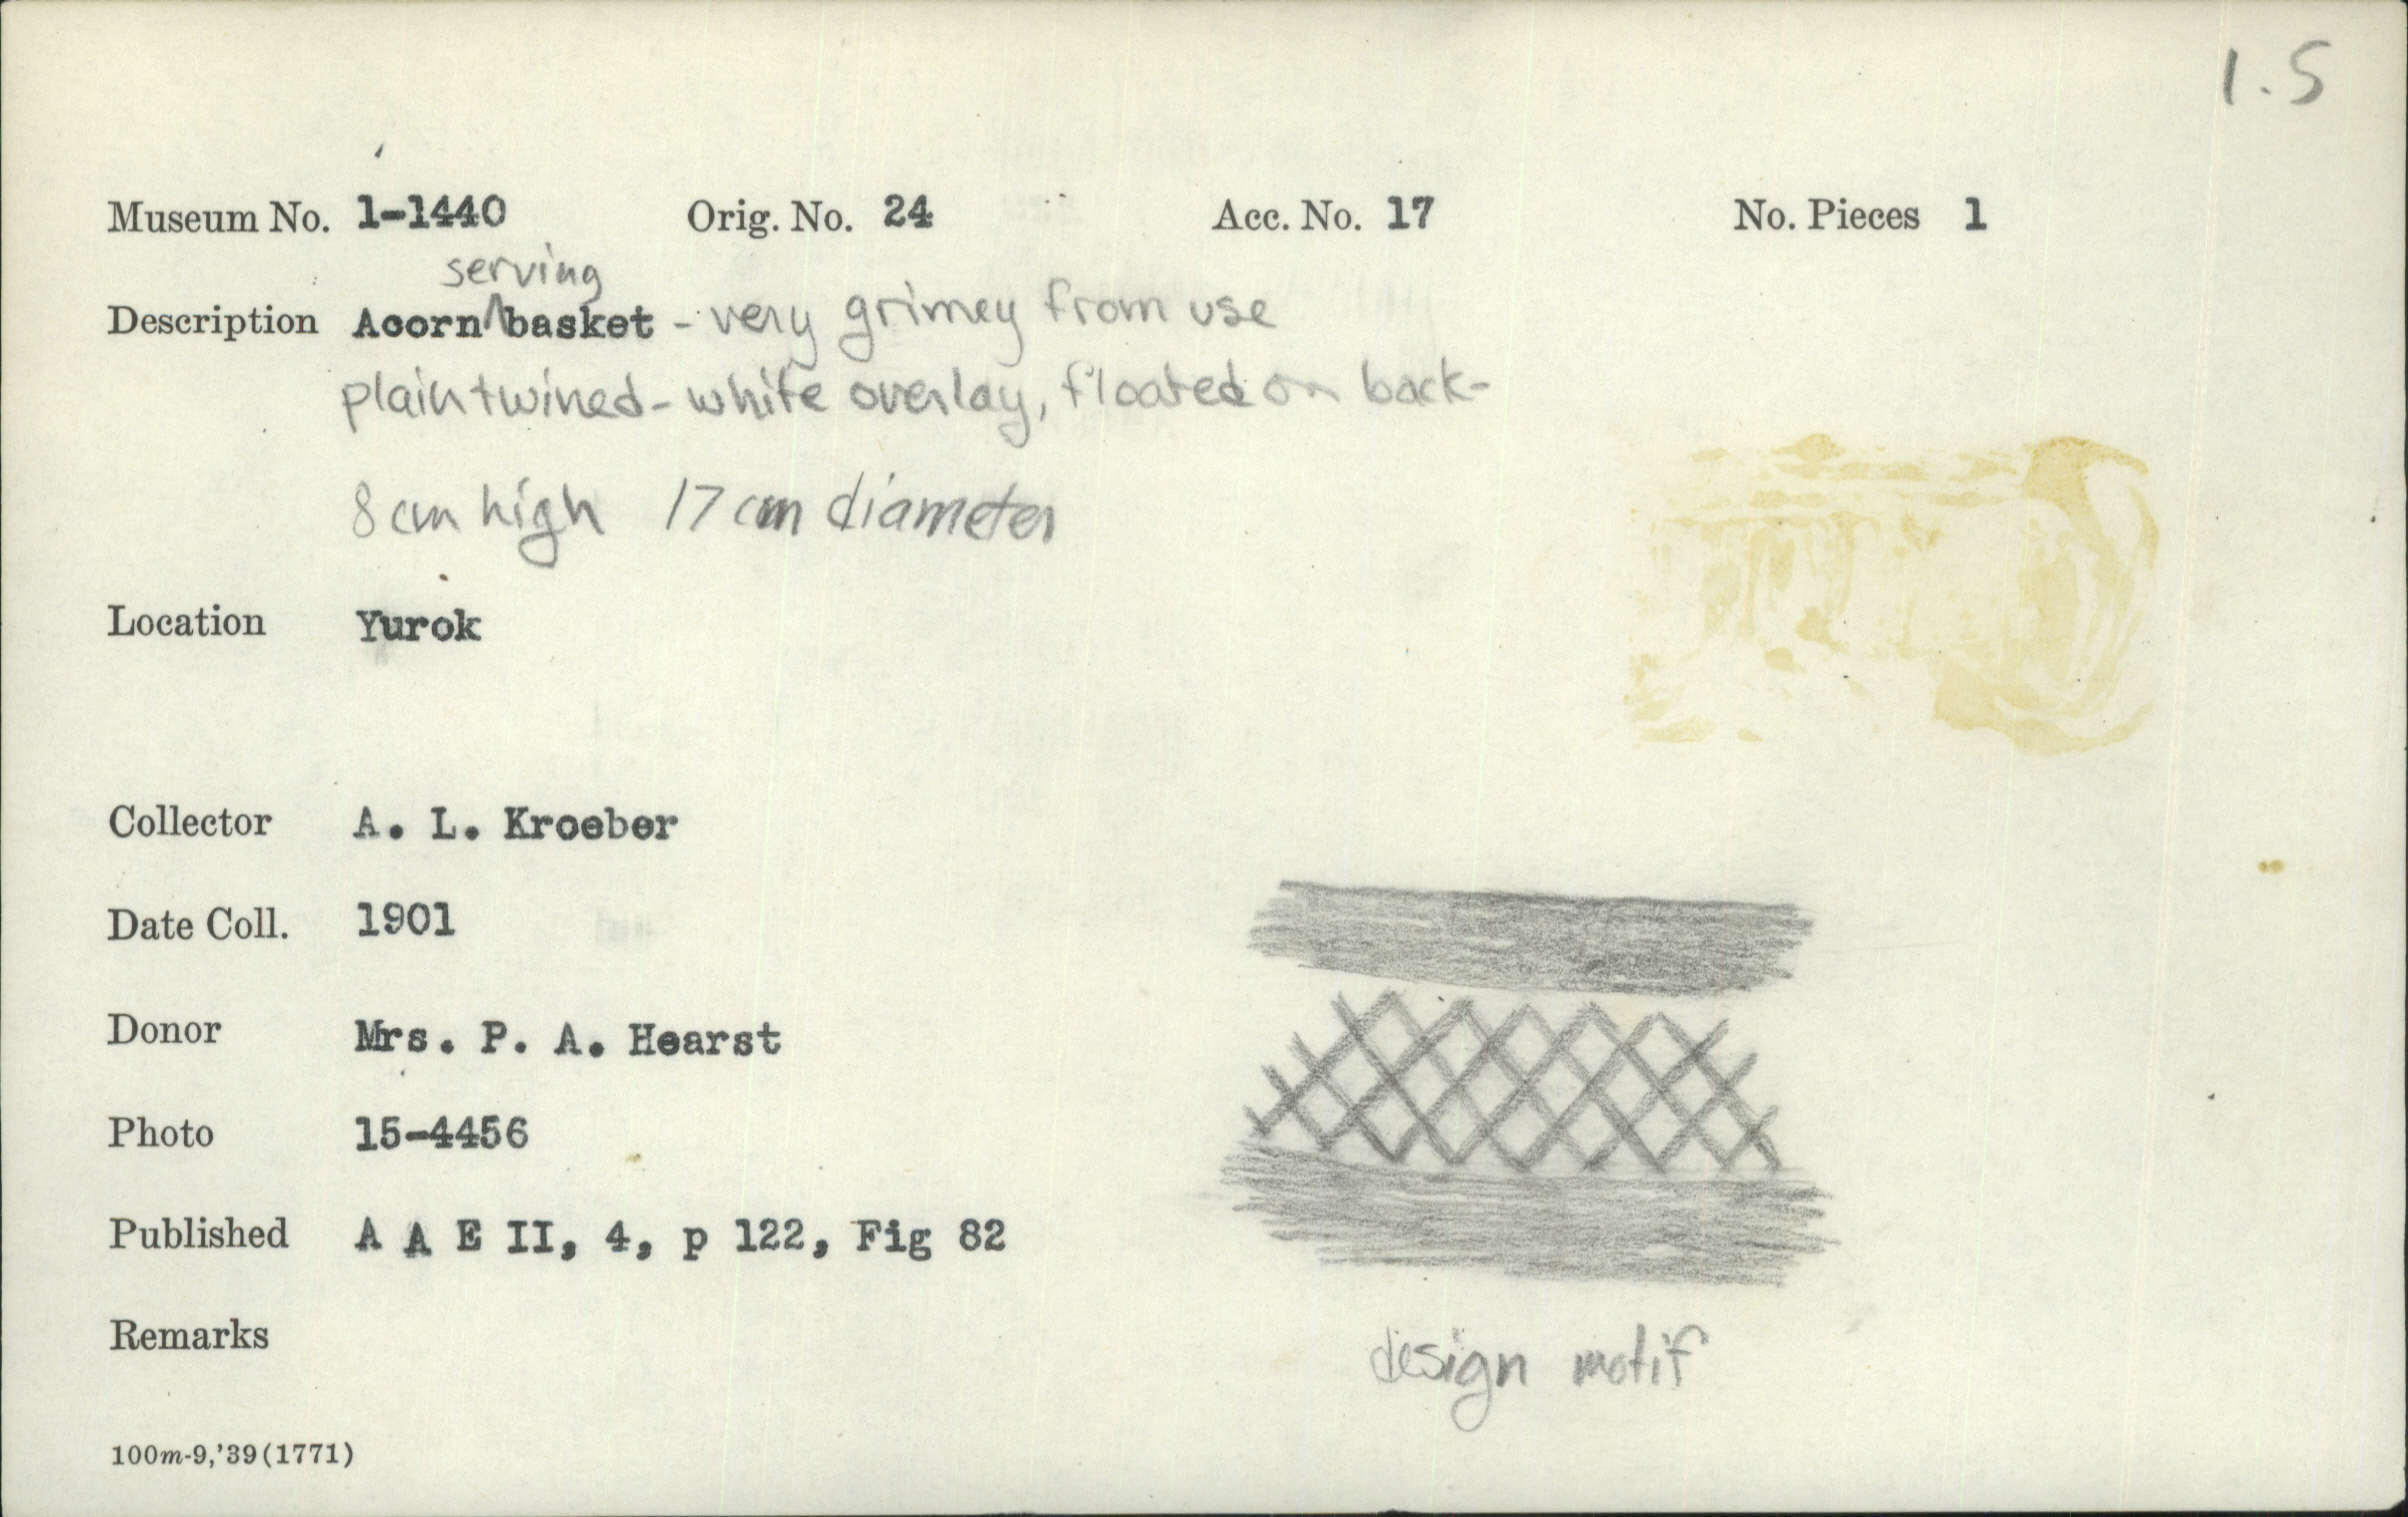 1.5
Museum No. 1-1440 Orig. No. 24 Acc. No. 17 No. Pieces 1
serving
Description Acorn ^ basket - very grimey from use
plain twined - white overlay, floated on back -
8 cm high 17 cm diameter
Location Yurok
Collector A. L. Kroeber
Date Coll. 1901
Donor Mrs. P. A. Hearst
Photo 15-4456
Published A A E II, 4, p 122, Fig 82
Remarks
design motif
100m-9,'39(1771)